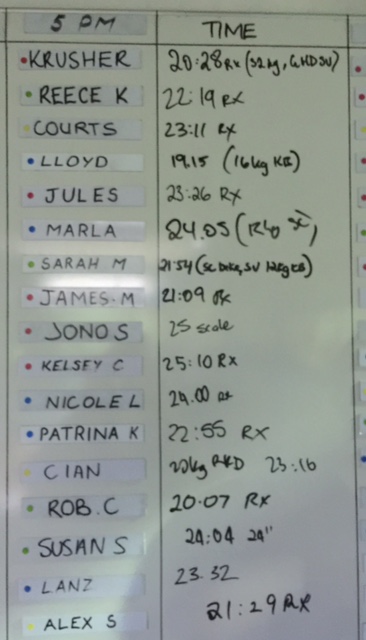 5 PM TIME
KRUSHER 20:28 Rx (32kg, GHDSU)
REECE K 22:19 RX
COURTS 23:11 RX
LLOYD 19.15 (16kg KB)
JULES 23:26 RX
MARLA 24.05
SARAH M 21:54
JAMES. M 21:09 RX
JONO S 25 scale
KELSEY C 25:10 RX
NICOLE L 24.00 RX
PATRINA K 22:55 RX
CIAN 23:16
ROB. C 20.07 RX
SUSAN S 24:04 24"
LANZ 23.32
ALEX S 21:29 RX